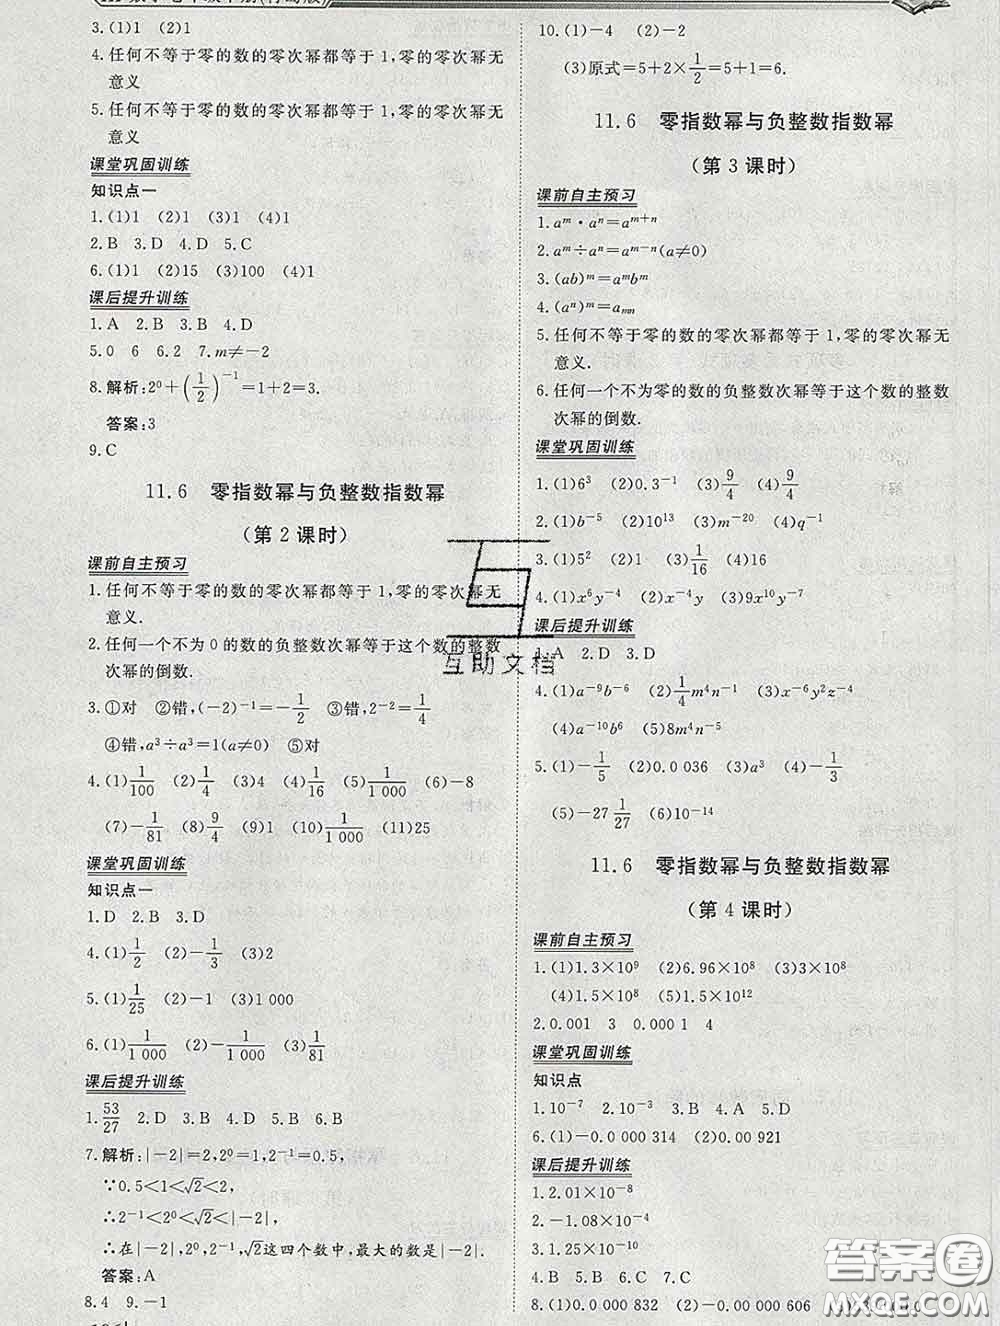 3.(1)1 (2)1
4.任何不等于零的数的零次幂都等于1,零的零次幂无
意义
5.任何不等于零的数的零次幂都等于1,零的零次幂无
意义
课堂巩固训练
知识点一
1.(1)1 (2)1 (3)1 (4)1
2.B 3.D 4.D 5.C
6.(1)1 (2)15 (3)100 (4)1
课后提升训练
1.A 2.B 3.B 4.D
5.0 6 6.2 7.m≠-2
8.解析:2⁰+(1/2)⁻¹=1+2=3.
答案:3
9.C
11.6 零指数幂与负整数指数幂
(第2课时)
课前自主预习
1.任何不等于零的数的零次幂都等于1,零的零次幂无
意义.
2.任何一个不为0的数的负整数次幂等于这个数的整数
次幂的倒数.
3.①对 ②错,(-2)⁻¹=-1/2 ③错,2⁻²=1/4
④错,a³÷a³=1(a≠0) ⑤对
4.(1)1/100 (2)1/4 (3)4 (4)1/16 (5)1/1 000 (6)-8
(7)-1/81 (8)9/4 (9)1 (10)1/1 000 (11)25
课堂巩固训练
知识点一
1.D 2.B 3.D
4.(1)1/2 (2)-1/3 (3)2
5.(1)1/25 (2)-1 (3)1 000
6.(1)1/1 000 (2)-1/1 000 (3)1/81
课后提升训练
1.53/27 2.D 3.B 4.D 5.B 6.B
7.解析:|-2|=2,2⁰=1,2⁻¹=0.5,
∵0.5<1<√2<2,
∴2⁻¹<2⁰<√2<|-2|,
∴在|-2|,2⁰,2⁻¹,√2这四个数中,最大的数是|-2|.
答案:A
8.4 9.-1
10.(1)-4 (2)-2
(3)原式=5+2×1/2=5+1=6.
11.6 零指数幂与负整数指数幂
(第3课时)
课前自主预习
1.aᵐ·aⁿ=aᵐ⁺ⁿ
2.aᵐ÷aⁿ=aᵐ⁻ⁿ(a≠0)
3.(ab)ᵐ=aᵐbᵐ
4.(aⁿ)ᵐ=aₘₙ
5.任何不等于零的数的零次幂都等于1,零的零次幂无
意义.
6.任何一个不为零的数的负整数次幂等于这个数的整数
次幂的倒数.
课堂巩固训练
1.(1)6³ (2)0.3⁻¹ (3)9/4 (4)9/4
2.(1)b⁻⁵ (2)10¹³ (3)m⁻²⁰ (4)q⁻¹
3.(1)5² (2)1 (3)1/16 (4)16
4.(1)x⁶y⁻⁴ (2)x⁻⁴y (3)9x¹⁰y⁻⁷
课后提升训练
1.A 2.D 3.D
4.(1)a⁻⁹b⁻⁶ (2)1/4m⁴n⁻¹ (3)-x⁻⁶y²z⁻⁴
(4)a⁻¹⁰b⁶ (5)8m⁴n⁻⁵
5.(1)-1/5 (2)0.0 036 (3)a³ (4)-1/3
(5)-27 1/27 (6)10⁻¹⁴
11.6 零指数幂与负整数指数幂
(第4课时)
课前自主预习
1.(1)1.3×10⁹ (2)6.96×10⁸ (3)3×10⁸
(4)1.5×10⁸ (5)1.5×10¹²
2.0.001 3 0.000 1 4
课堂巩固训练
知识点
1.10⁻⁷ 2.10⁻³ 3.B 4.A 5.D
6.(1)-0.0 000 314 (2)0.00 921
课后提升训练
1.2.01×10⁻⁸
2.-1.08×10⁻⁴
3.1.25×10⁻¹⁰
4.B 5.D 6.C 7.C
8.(1)0.0 000 832 (2)0.0 000 000 606
互助文档
答案圈
MXQE.COM